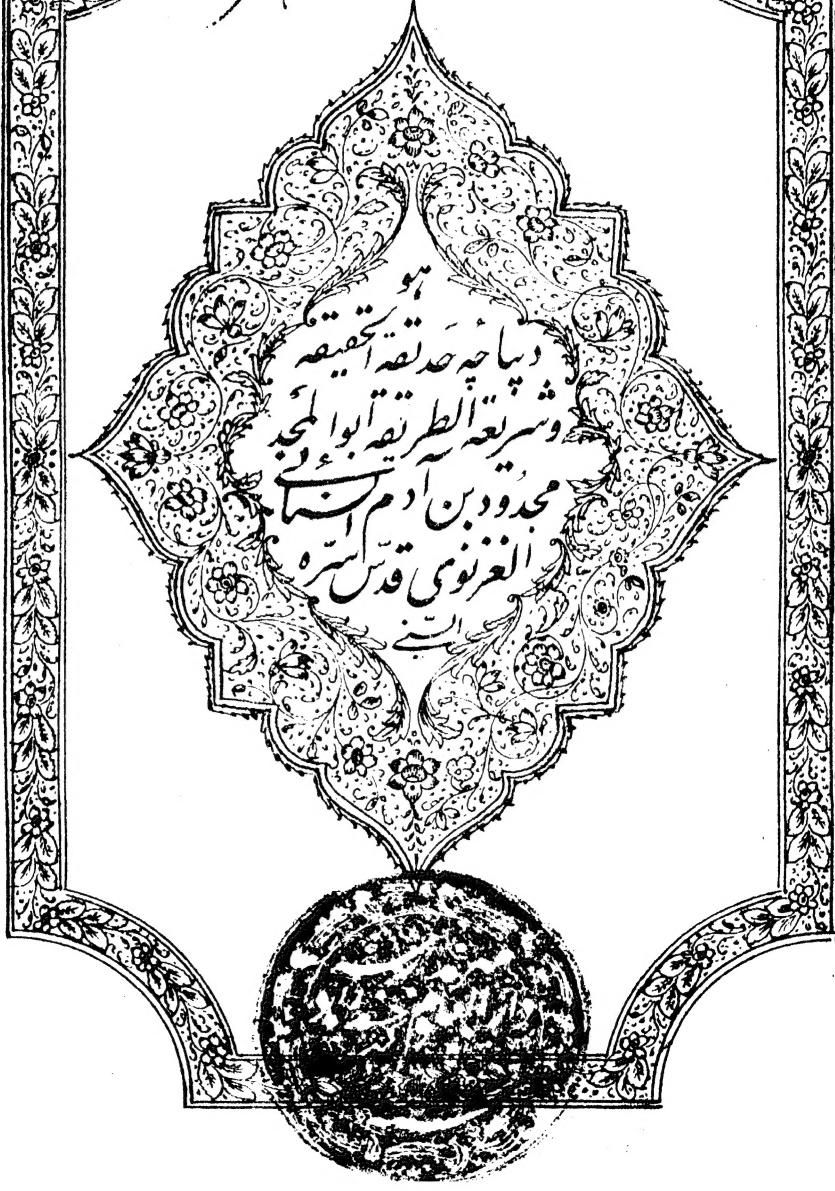 هو
دیباچهٔ حدیقة الحقیقه
وشریعة الطریقه ابوالمجد
مجدود بن آدم السنائی
الغزنوی قدّس سرّه
السنی